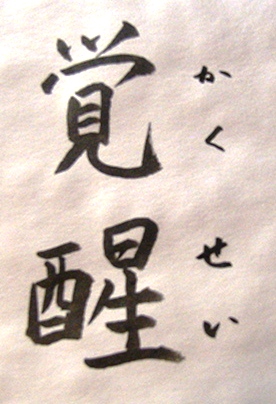 覚醒
かくせい